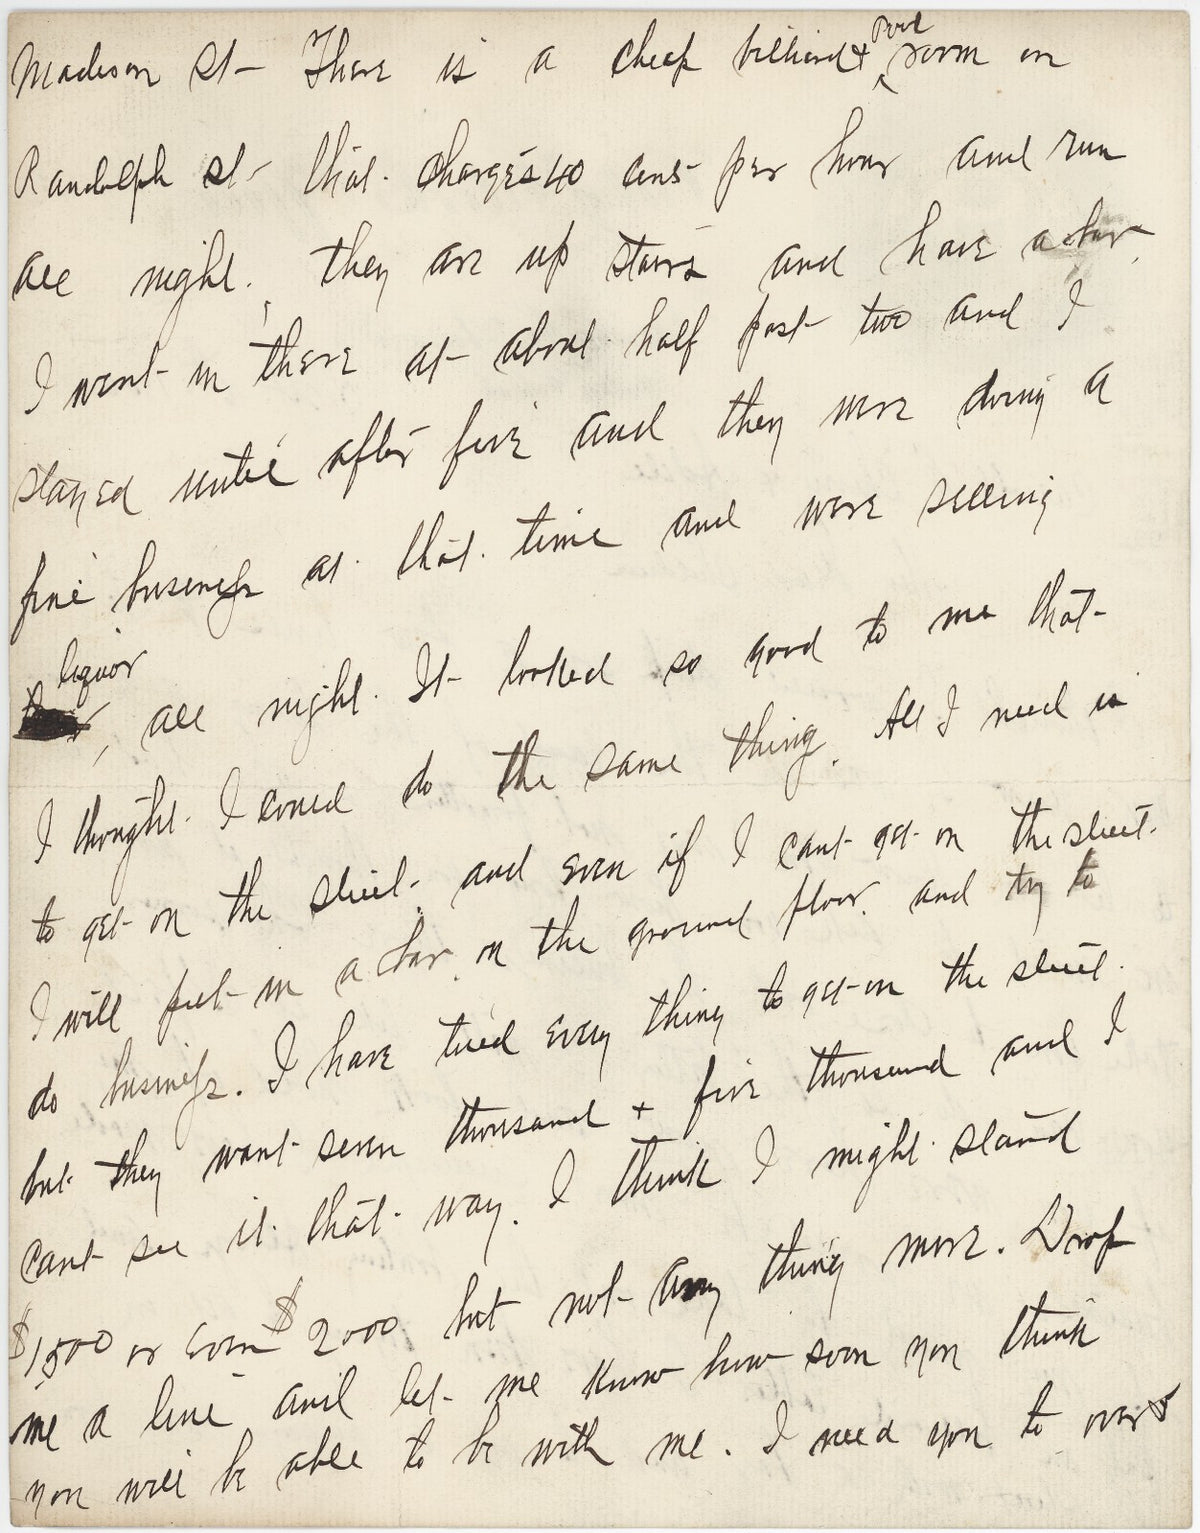 Madison St- There is a cheap billiard + Pool room on
Randolph st- that charges 40 cens per hour and run
all night. they are up stairs and have a bar.
I went in there at about half past two and I
stayed until after five and they were doing a
fine business at that time and were selling
liquor, all night. It looked so good to me that
I thought I could do the same thing. All I need is
to get on the street. and even if I cant get on the street.
I will put in a bar on the ground floor. and try to
do business. I have tried every thing to get on the street.
but they want seven thousand + five thousand and I
cant see it that way. I think I might stand
$1500 or even $2000 but not any thing more. Drop
me a line and let me know how soon you think
you will be able to be with me. I need you to over